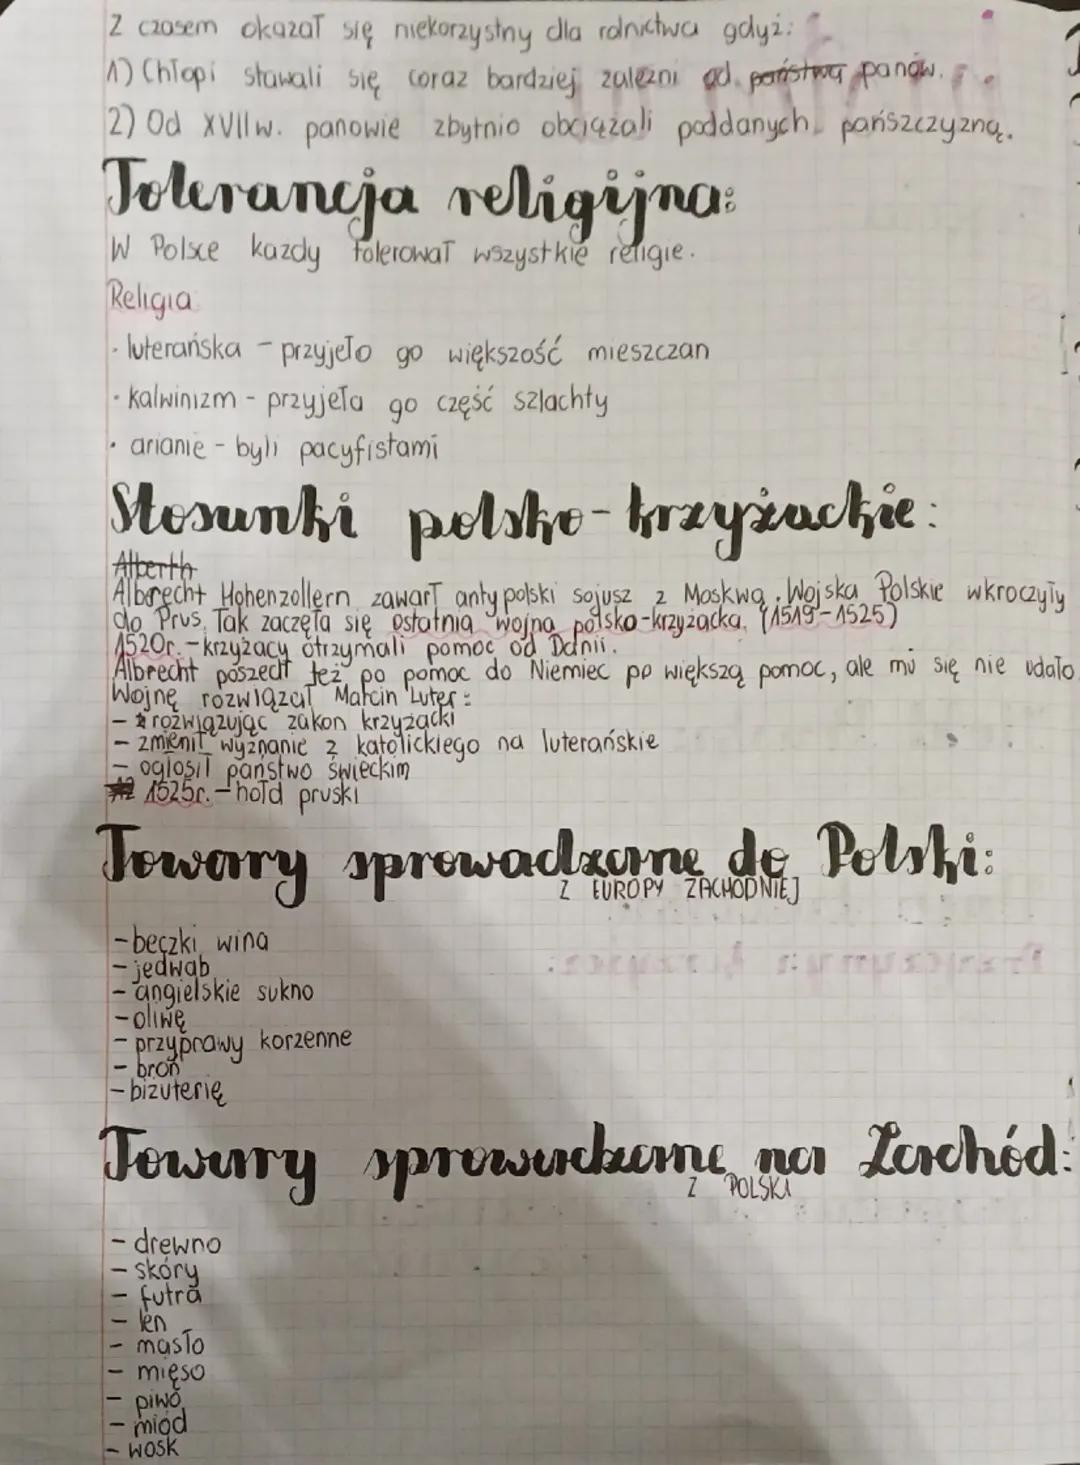 Z czasem okazał się niekorzystny dla rolnictwa gdyż:
1) Chłopi stawali się coraz bardziej zależni od państwa panów.
2) Od XVII w. panowie zbytnio obciążali poddanych pańszczyzną.
Tolerancja religijna:
W Polsce każdy tolerował wszystkie religie.
Religia
· luterańska - przyjęło go większość mieszczan
· kalwinizm - przyjęła go część szlachty
· arianie - byli pacyfistami
Stosunki polsko-krzyżackie:
Alberth
Albrecht Hohenzollern zawarł antypolski sojusz z Moskwą. Wojska Polskie wkroczyły
do Prus. Tak zaczęła się ostatnia wojna polsko-krzyżacka. (1519-1525)
1520r. - krzyżacy otrzymali pomoc od Danii.
Albrecht poszedł też po pomoc do Niemiec po większą pomoc, ale mu się nie udało
Wojnę rozwiązał Marcin Luter:
- rozwiązując zakon krzyżacki
- zmienił wyznanie z katolickiego na luterańskie
- ogłosił państwo świeckim
1525r. - hołd pruski
Towary sprowadzane do Polski:
Z EUROPY ZACHODNIEJ
- beczki wina
- jedwab
- angielskie sukno
- oliwę
- przyprawy korzenne
- broń
- biżuterię
Towary sprowadzane na Zachód:
Z POLSKI
- drewno
- skóry
- futra
- len
- masło
- mięso
- piwo
- miód
- wosk